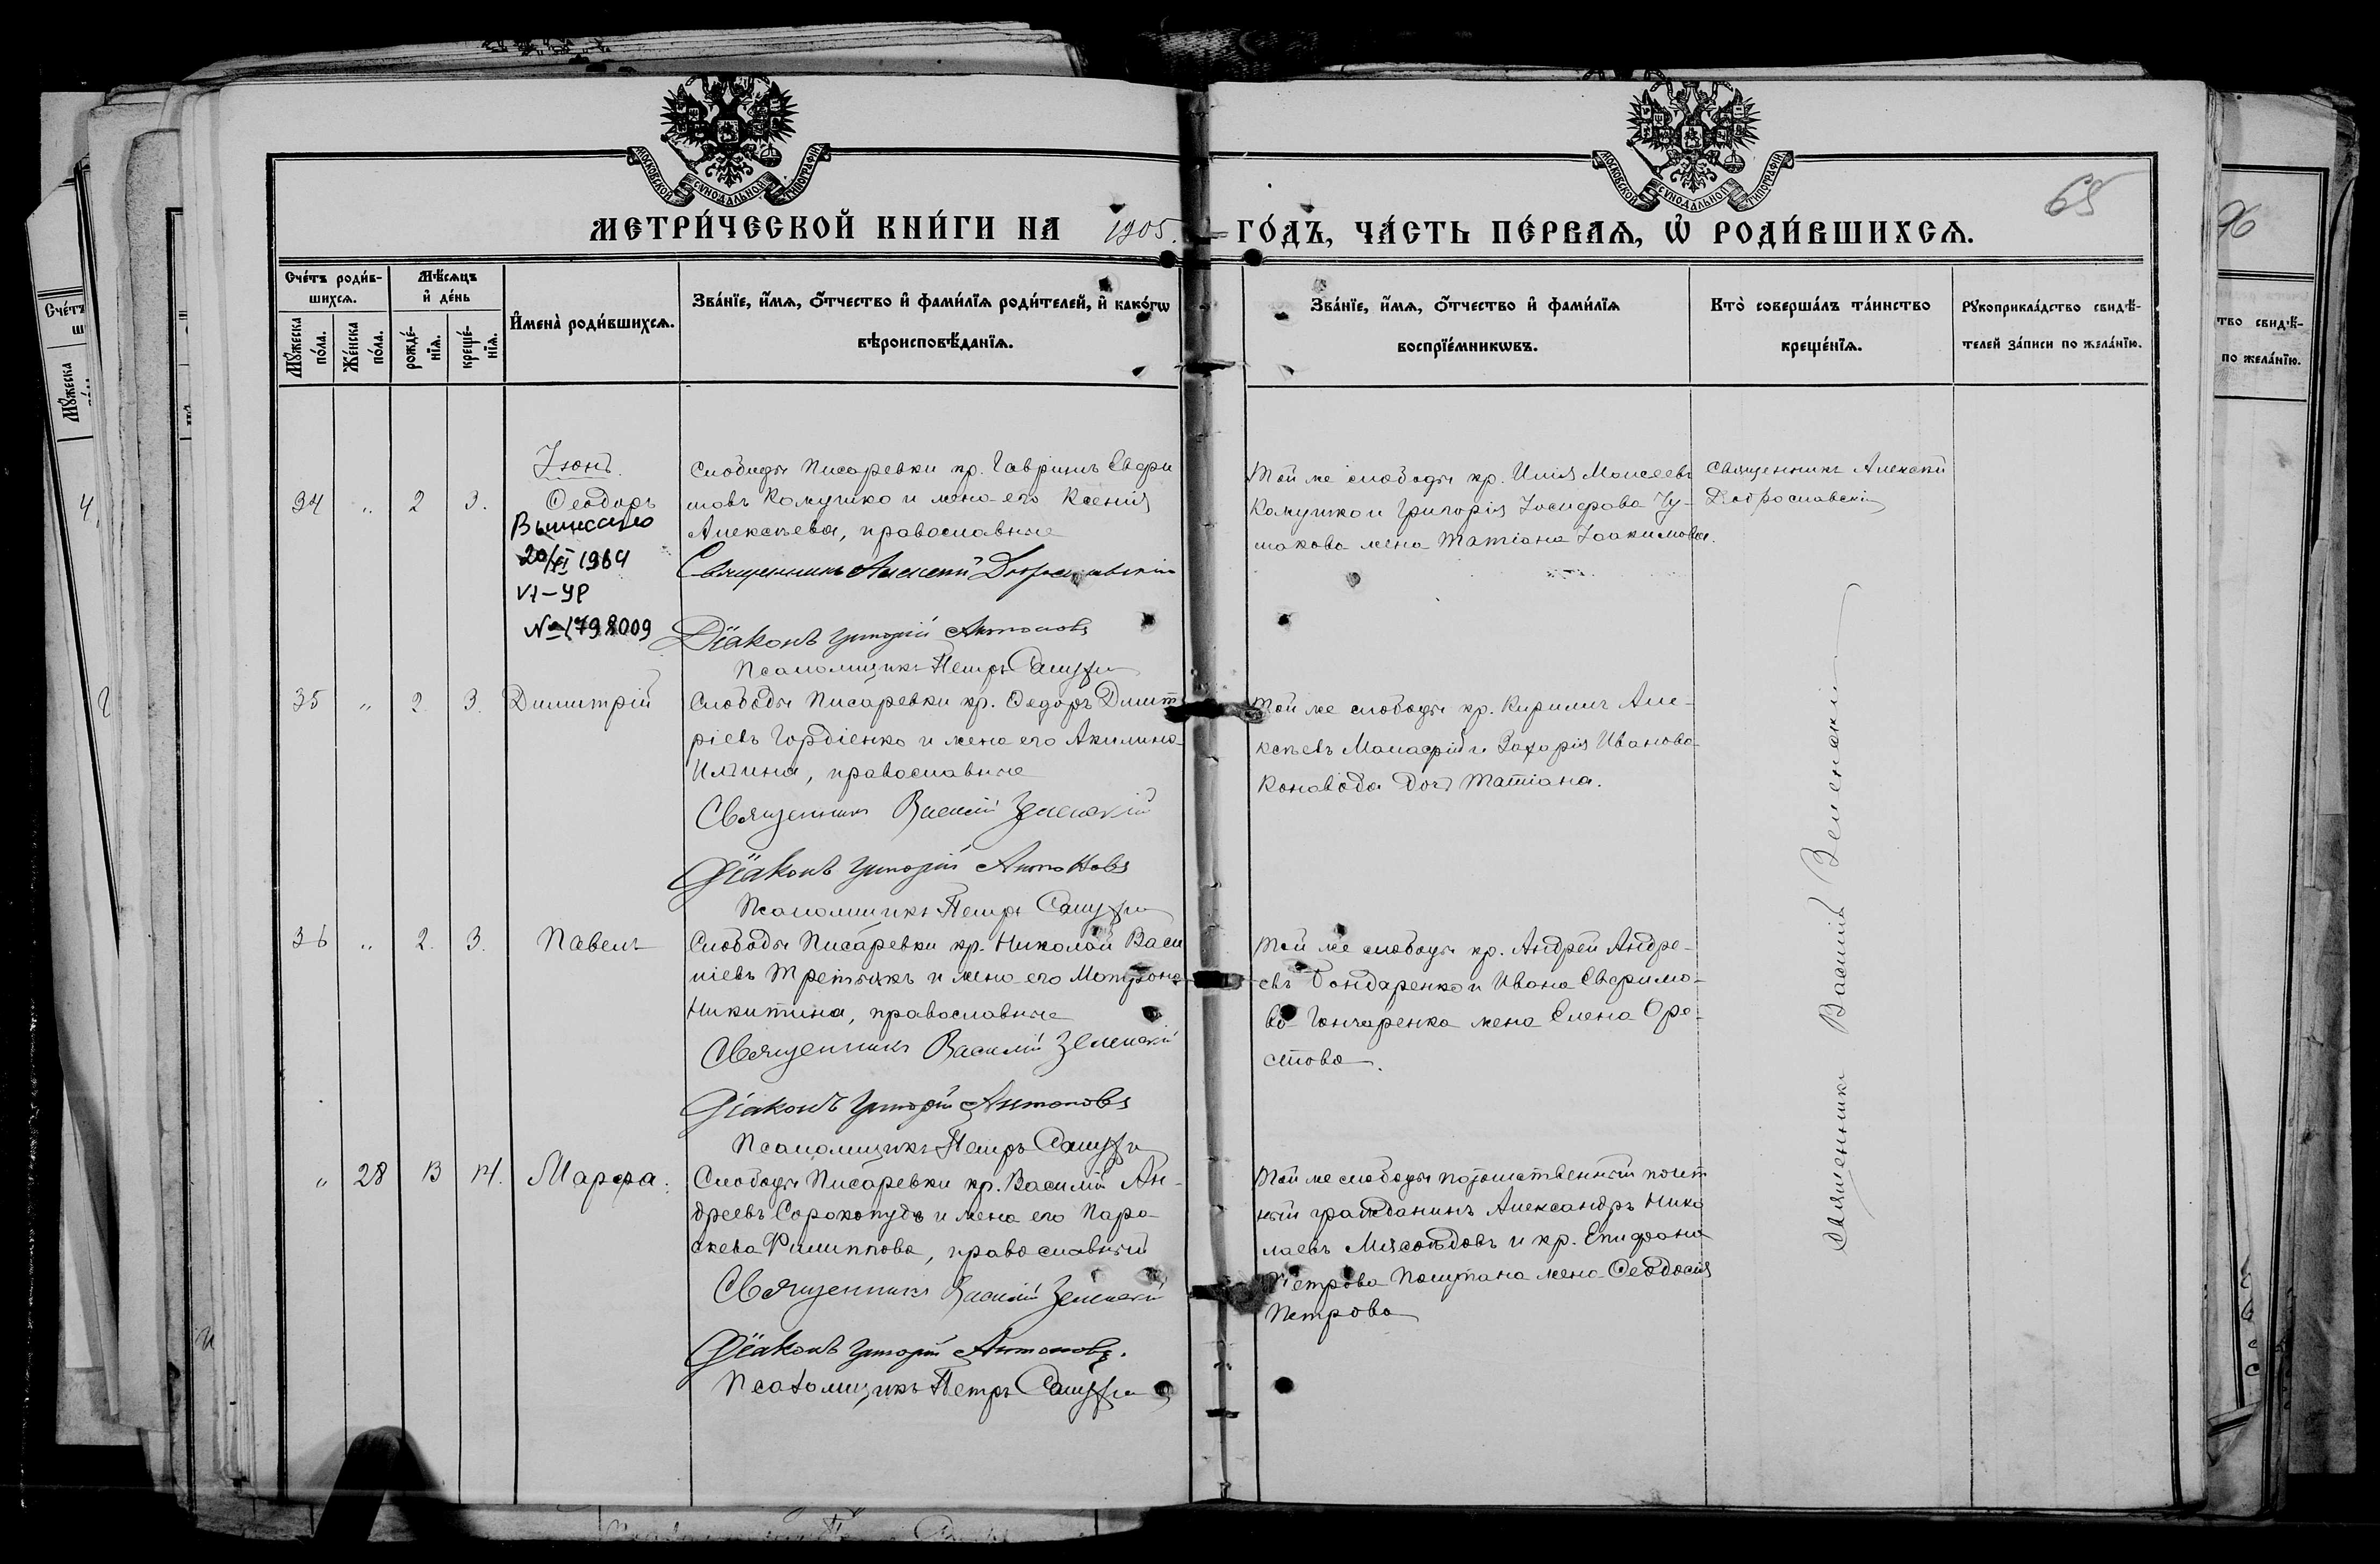 МОСКОВСКОЙ СѴНОДАЛЬНОЙ ТИПОГРАФІИ
МОСКОВСКОЙ СѴНОДАЛЬНОЙ ТИПОГРАФІИ
65
МЕТРИ́ЧЕСКОЙ КНИ́ГИ НА 1905. ГО́ДЪ, ЧА́СТЬ ПЕ́РВАѦ, Ѡ҆ РОДИ́ВШИХСѦ.
Сче́тъ роди́в-
шихсѧ.
Мꙋ́жеска
по́ла.
Же́нска
по́ла.
Мѣ́сѧцъ
и҆ де́нь
рожде́-
нїѧ.
креще́-
нїѧ.
И҆мена̀ роди́вшихсѧ.
Зва́нїе, и҆́мѧ, ѻ҆́тчество и҆ фами́лїѧ роди́телей, и҆ како́гѡ
вѣроисповѣ́данїѧ.
Зва́нїе, и҆́мѧ, ѻ҆́тчество и҆ фами́лїѧ
воспрїе́мникѡвъ.
Кто̀ соверша́лъ та́инство
креще́нїѧ.
Рꙋкоприкла́дство свидѣ́-
телей за́писи по жела́нїю.
Іюнь.
34 " 2 3. Ѳеодоръ
Выписано
20/XI 1964
VI-УР
№ 1798009
Слободы Писаревки кр. Гавриилъ Евфи
мовъ Кожушко и жена его Ксенія
Алексѣева, православные
Священникъ Алексій Доброславскій
Діаконъ Григорій Антоновъ
Псаломщикъ Петръ
Той же слободы кр. Илія Моисеевъ
Кожушко и Григорія Іосифова Чу-
макова жена Татіана Іоакимова.
Священникъ Алексѣй
Доброславскій
35 " 2. 3. Димитрій
Слободы Писаревки кр. Ѳедоръ Димит
ріевъ Гордіенко и жена его Акилина
Ильина, православные
Священникъ Василій Зеленскій
Діаконъ Григорій Антоновъ
Псаломщикъ Петръ
Той же слободы кр. Кириллъ Але-
ксѣевъ и Захарія Иванова
Коновода дочь Татіана.
36 " 2. 3. Павелъ
Слободы Писаревки кр. Николай Васи
ліевъ Третьякъ и жена его Матрона
Никитина, православные
Священникъ Василій Зеленскій
Діаконъ Григорій Антоновъ
Псаломщикъ Петръ
Той же слободы кр. Андрей Андре-
евъ Бондаренко и Ивана Евфимо-
ва Гончаренка жена Елена Оре-
стова.
" 28 13 14. Марѳа.
Слободы Писаревки кр. Василій Ан-
дреевъ Сорокопудъ и жена его Пара-
скева Филиппова, православный
Священникъ Василій Зеленскій
Діаконъ Григорій Антоновъ.
Псаломщикъ Петръ
Той же слободы потомственный почет
ный гражданинъ Александръ Нико
лаевъ Мясоѣдовъ и кр. Епифана
Петрова жена Ѳеодосія
Петрова
Священникъ Василій Зеленскій
96